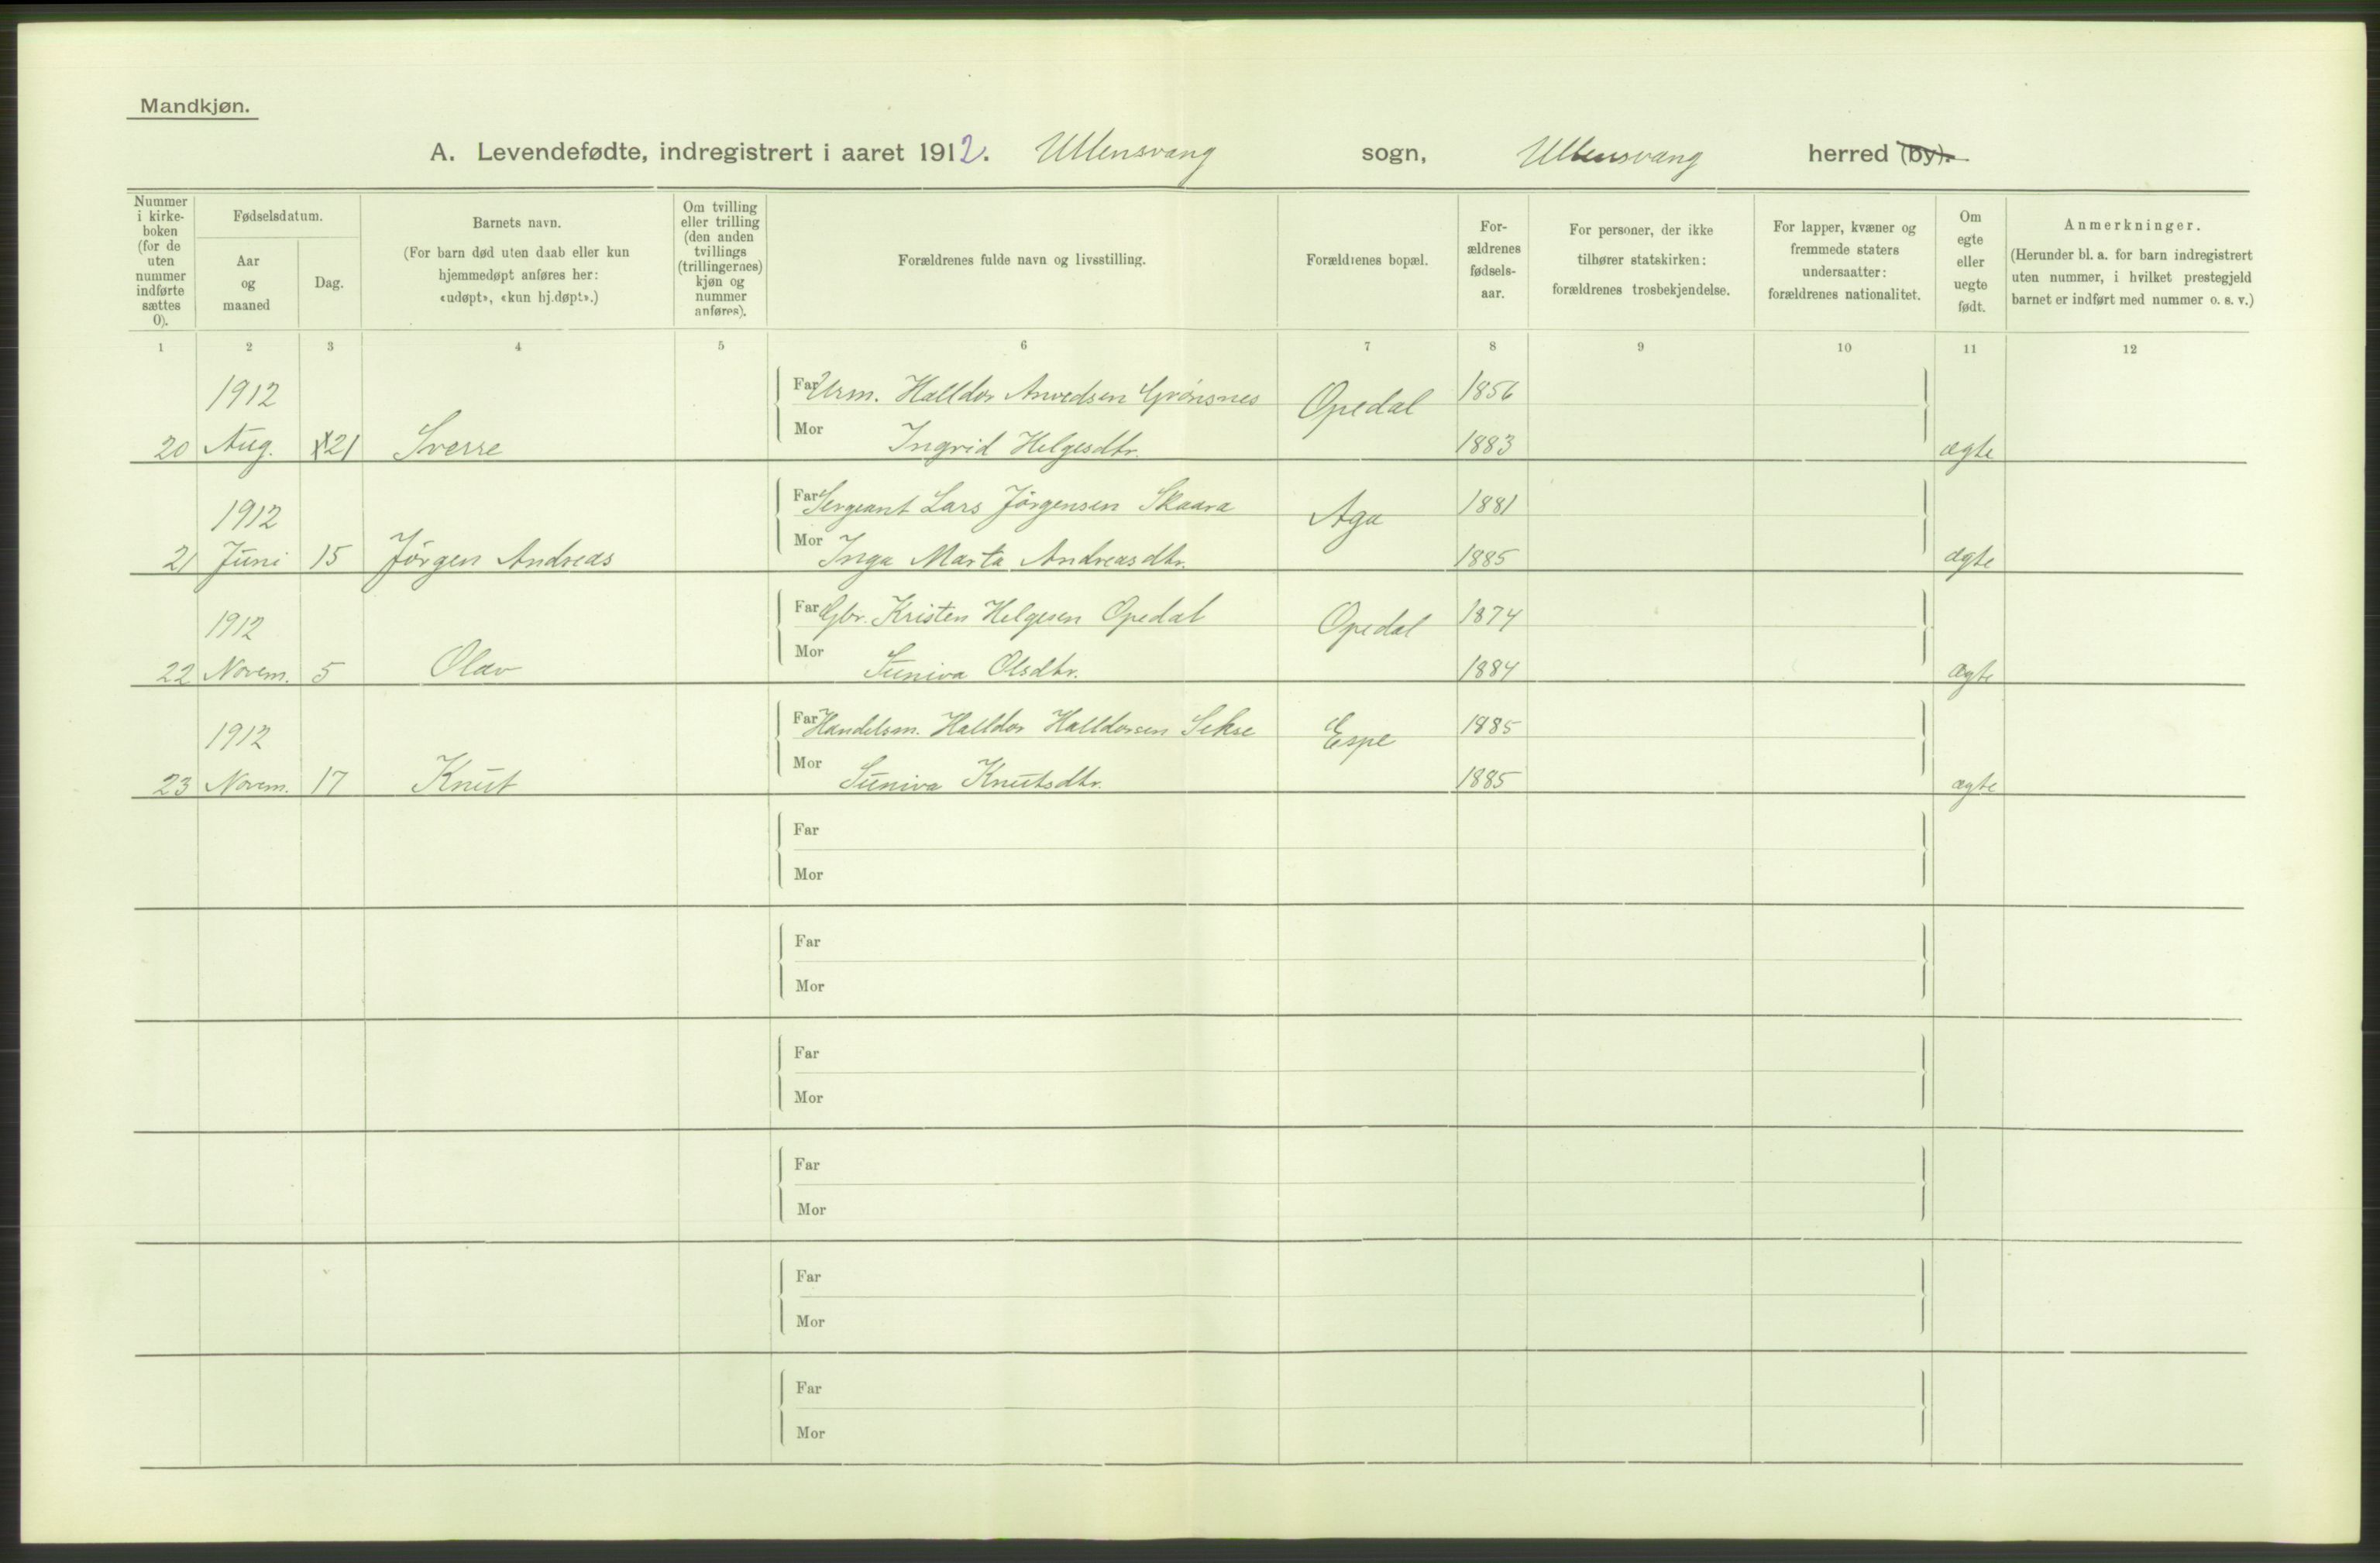 Mandkjøn.
A. Levendefødte, indregistrert i aaret 1912. Ullensvang sogn, Ullensvang herred (by).
Nummer i kirke-boken (for de uten nummer indførte sættes 0).
Fødselsdatum.
Aar og maaned
Dag.
Barnets navn.
(For barn død uten daab eller kun hjemmedøpt anføres her: «udøpt», «kun hj.døpt».)
Om tvilling eller trilling (den anden tvillings (trillingernes) kjøn og nummer anføres).
Forældrenes fulde navn og livsstilling.
Forældrenes bopæl.
For-ældrenes fødsels-aar.
For personer, der ikke tilhører statskirken: forældrenes trosbekjendelse.
For lapper, kvæner og fremmede staters undersaatter: forældrenes nationalitet.
Om egte eller uegte født.
Anmerkninger.
(Herunder bl. a. for barn indregistrert uten nummer, i hvilket prestegjeld barnet er indført med nummer o. s. v.)
1 2 3 4 5 6 7 8 9 10 11 12
1912 Far Halldor Opedal 1856
20 Aug. 21 Sverre Mor Ingrid Helgesdtr. 1883 ægte
1912 Far Sergeant Lars Jørgensen Skaara Aga 1881
21 Juni 15 Jörgen Andreas Mor Inga Marta Andreasdtr. 1885 ægte
1912 Far Gbr. Kristen Helgesen Opedal Opedal 1874
22 Novem. 5 Olav Mor Suniva Olsdtr. 1884 ægte
1912 Far Handelsm. Halldor Halldorsen Sekse Espe 1885
23 Novem. 17 Knut Mor Suniva Knutsdtr. 1885 ægte
Far
Mor
Far
Mor
Far
Mor
Far
Mor
Far
Mor
Far
Mor